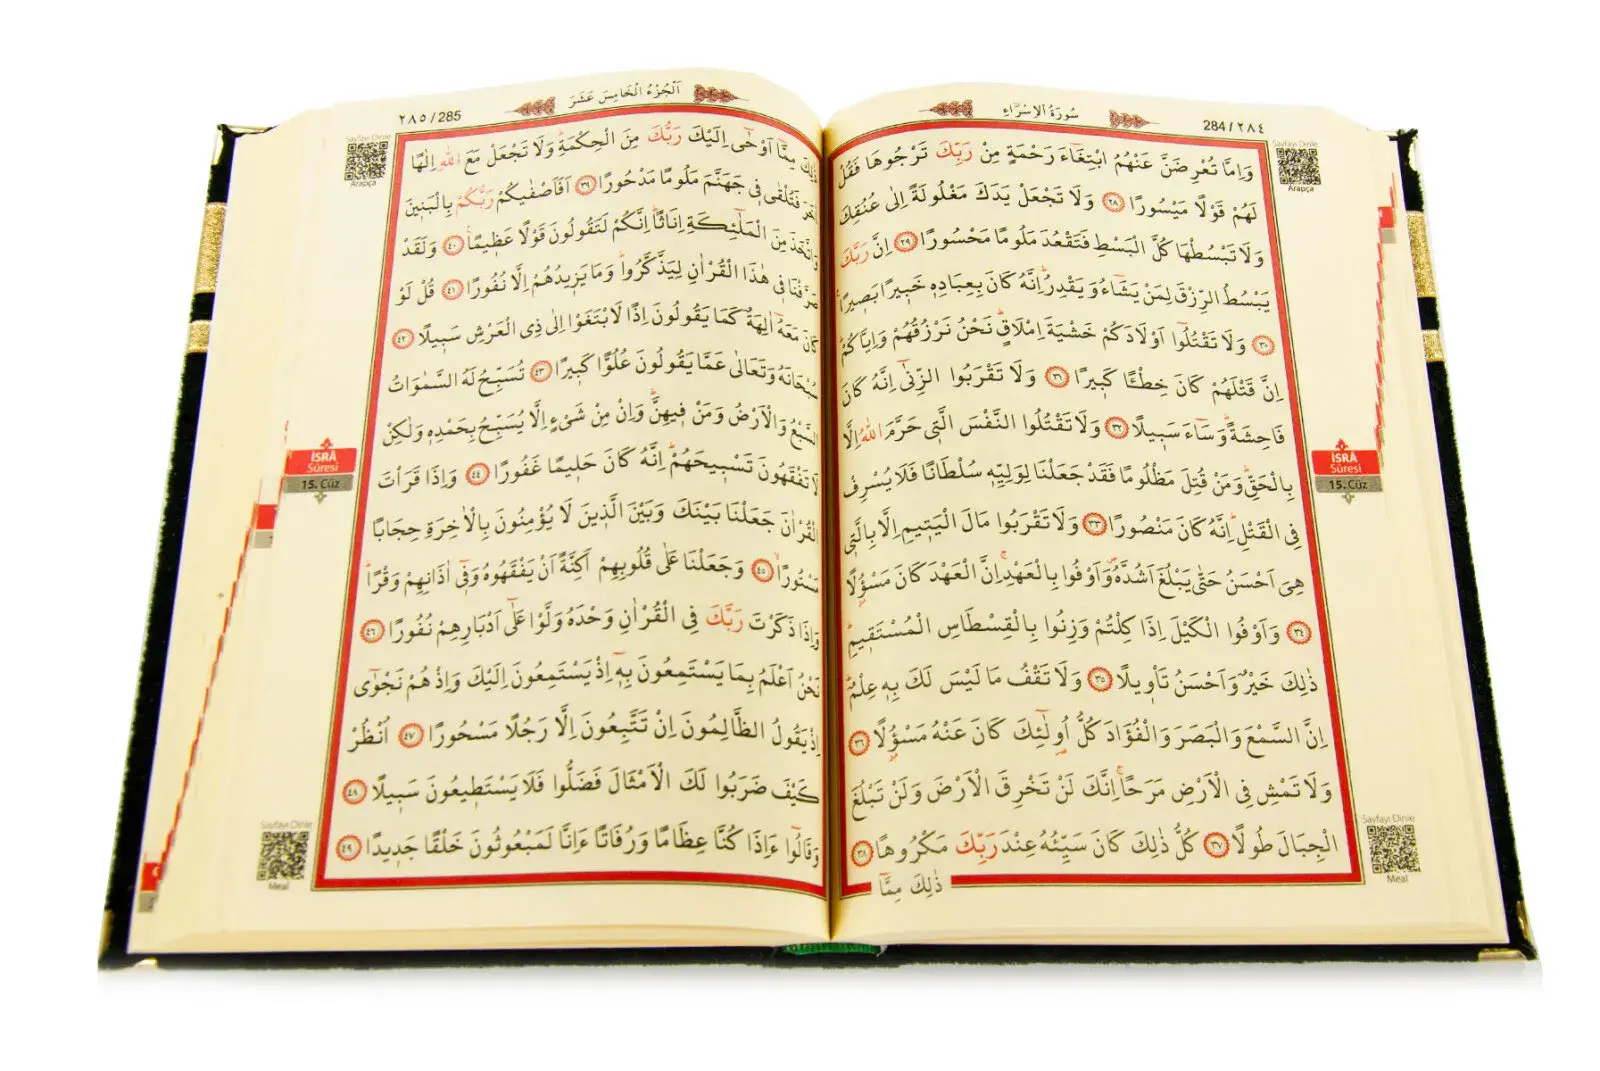 284 / ٢٨٤
سُورَةُ الْاِسْرَٓاءِ
Sayfayı Dinle
Arapça
وَاِمَّا تُعْرِضَنَّ عَنْهُمُ ابْتِغَٓاءَ رَحْمَةٍ مِنْ رَبِّكَ تَرْجُوهَا فَقُلْ
لَهُمْ قَوْلًا مَيْسُورًا ﴿٢٨﴾ وَلَا تَجْعَلْ يَدَكَ مَغْلُولَةً اِلٰى عُنُقِكَ
وَلَا تَبْسُطْهَا كُلَّ الْبَسْطِ فَتَقْعُدَ مَلُومًا مَحْسُورًا ﴿٢٩﴾ اِنَّ رَبَّكَ
يَبْسُطُ الرِّزْقَ لِمَنْ يَشَٓاءُ وَيَقْدِرُۜ اِنَّهُ كَانَ بِعِبَادِهٖ خَبٖيرًا بَصٖيرًا
﴿٣٠﴾ وَلَا تَقْتُلُٓوا اَوْلَادَكُمْ خَشْيَةَ اِمْلَاقٍۜ نَحْنُ نَرْزُقُهُمْ وَاِيَّاكُمْۜ
اِنَّ قَتْلَهُمْ كَانَ خِطْـًٔا كَبٖيرًا ﴿٣١﴾ وَلَا تَقْرَبُوا الزِّنٰٓى اِنَّهُ كَانَ
فَاحِشَةًۜ وَسَٓاءَ سَبٖيلًا ﴿٣٢﴾ وَلَا تَقْتُلُوا النَّفْسَ الَّتٖى حَرَّمَ اللّٰهُ اِلَّا
بِالْحَقِّۜ وَمَنْ قُتِلَ مَظْلُومًا فَقَدْ جَعَلْنَا لِوَلِيِّهٖ سُلْطَانًا فَلَا يُسْرِفْ
فِى الْقَتْلِۜ اِنَّهُ كَانَ مَنْصُورًا ﴿٣٣﴾ وَلَا تَقْرَبُوا مَالَ الْيَتٖيمِ اِلَّا بِالَّتٖى
هِىَ اَحْسَنُ حَتّٰى يَبْلُغَ اَشُدَّهُۖ وَاَوْفُوا بِالْعَهْدِۚ اِنَّ الْعَهْدَ كَانَ مَسْؤُلًا
﴿٣٤﴾ وَاَوْفُوا الْكَيْلَ اِذَا كِلْتُمْ وَزِنُوا بِالْقِسْطَاسِ الْمُسْتَقٖيمِۜ
ذٰلِكَ خَيْرٌ وَاَحْسَنُ تَأْوٖيلًا ﴿٣٥﴾ وَلَا تَقْفُ مَا لَيْسَ لَكَ بِهٖ عِلْمٌۜ
اِنَّ السَّمْعَ وَالْبَصَرَ وَالْفُؤٰادَ كُلُّ اُو۬لٰٓئِكَ كَانَ عَنْهُ مَسْؤُلًا ﴿٣٦﴾
وَلَا تَمْشِ فِى الْاَرْضِ مَرَحًاۚ اِنَّكَ لَنْ تَخْرِقَ الْاَرْضَ وَلَنْ تَبْلُغَ
الْجِبَالَ طُولًا ﴿٣٧﴾ كُلُّ ذٰلِكَ كَانَ سَيِّئُهُ عِنْدَ رَبِّكَ مَكْرُوهًا ﴿٣٨﴾
ذٰلِكَ مِمَّٓا
İSRÂ
Sûresi
15. Cüz
Sayfayı Dinle
Meal
٢٨٥ / 285
اَلْجُزْءُ الْخَامِسَ عَشَرَ
Sayfayı Dinle
Arapça
ذٰلِكَ مِمَّٓا اَوْحٰٓى اِلَيْكَ رَبُّكَ مِنَ الْحِكْمَةِۜ وَلَا تَجْعَلْ مَعَ اللّٰهِ اِلٰهًا
اٰخَرَ فَتُلْقٰى فٖى جَهَنَّمَ مَلُومًا مَدْحُورًا ﴿٣٩﴾ اَفَاَصْفٰيكُمْ رَبُّكُمْ بِالْبَنٖينَ
وَاتَّخَذَ مِنَ الْمَلٰٓئِكَةِ اِنَاثًاۜ اِنَّكُمْ لَتَقُولُونَ قَوْلًا عَظٖيمًا ﴿٤٠﴾ وَلَقَدْ
صَرَّفْنَا فٖى هٰذَا الْقُرْاٰنِ لِيَذَّكَّرُواۜ وَمَا يَزٖيدُهُمْ اِلَّا نُفُورًا ﴿٤١﴾ قُلْ لَوْ
كَانَ مَعَهُٓ اٰلِهَةٌ كَمَا يَقُولُونَ اِذًا لَابْتَغَوْا اِلٰى ذِى الْعَرْشِ سَبٖيلًا ﴿٤٢﴾
سُبْحَانَهُ وَتَعَالٰى عَمَّا يَقُولُونَ عُلُوًّا كَبٖيرًا ﴿٤٣﴾ تُسَبِّحُ لَهُ السَّمٰوَاتُ
السَّبْعُ وَالْاَرْضُ وَمَنْ فٖيهِنَّۜ وَاِنْ مِنْ شَىْءٍ اِلَّا يُسَبِّحُ بِحَمْدِهٖ وَلٰكِنْ
لَا تَفْقَهُونَ تَسْبٖيحَهُمْۜ اِنَّهُ كَانَ حَلٖيمًا غَفُورًا ﴿٤٤﴾ وَاِذَا قَرَأْتَ
الْقُرْاٰنَ جَعَلْنَا بَيْنَكَ وَبَيْنَ الَّذٖينَ لَا يُؤْمِنُونَ بِالْاٰخِرَةِ حِجَابًا
مَسْتُورًاۙ ﴿٤٥﴾ وَجَعَلْنَا عَلٰى قُلُوبِهِمْ اَكِنَّةً اَنْ يَفْقَهُوهُ وَفٖٓى اٰذَانِهِمْ وَقْرًاۜ
وَاِذَا ذَكَرْتَ رَبَّكَ فِى الْقُرْاٰنِ وَحْدَهُ وَلَّوْا عَلٰٓى اَدْبَارِهِمْ نُفُورًا ﴿٤٦﴾
نَحْنُ اَعْلَمُ بِمَا يَسْتَمِعُونَ بِهٖٓ اِذْ يَسْتَمِعُونَ اِلَيْكَ وَاِذْ هُمْ نَجْوٰٓى
اِذْ يَقُولُ الظَّالِمُونَ اِنْ تَتَّبِعُونَ اِلَّا رَجُلًا مَسْحُورًا ﴿٤٧﴾ اُنْظُرْ
كَيْفَ ضَرَبُوا لَكَ الْاَمْثَالَ فَضَلُّوا فَلَا يَسْتَطٖيعُونَ سَبٖيلًا ﴿٤٨﴾
وَقَالُٓوا ءَاِذَا كُنَّا عِظَامًا وَرُفَاتًا ءَاِنَّا لَمَبْعُوثُونَ خَلْقًا جَدٖيدًا ﴿٤٩﴾
İSRÂ
Sûresi
15. Cüz
Sayfayı Dinle
Meal